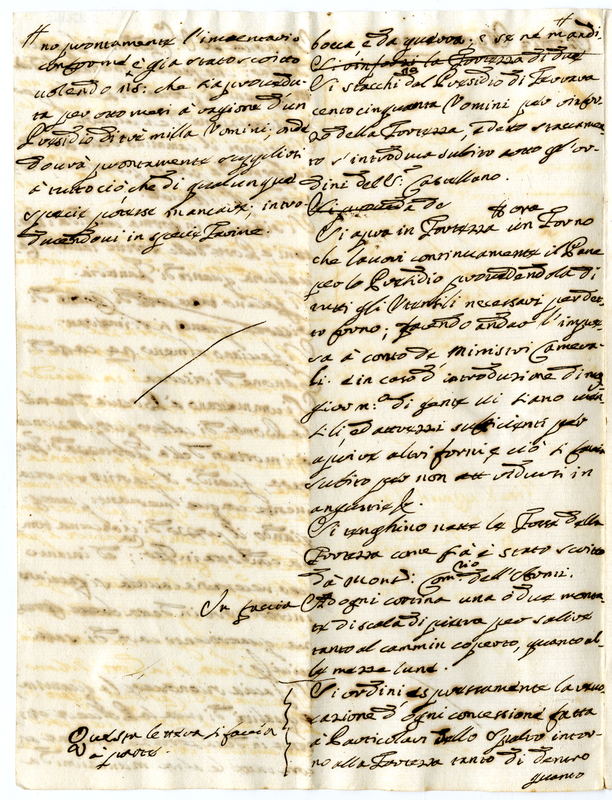 # no prontamente l'inventario
conforme è già stato scritto
volendo N.S: che sia proveduta
per otto mesi à ragione d'un
Presidio di tre milla Uomini, onde
dovrà prontamente supplirsi
à tutto ciò che di qualunque
specie potesse mancare; introducendovi
in specie Farine.
In faccia
Questa lettera si faccia
à parte.
bocca è da guerra; e se ne mandi #
Si rinforzi la Fortezza di due
Si stacchi dal Presidio di Ferrara
cento cinquanta Uomini per rinforzo
della Fortezza, e detto staccamento
s'introduca subito sotto gl'ordini
dell S.r Castellano.
Si proveda de
Si apra in Fortezza # ora un Forno
che lavori continuamente il Pane
per lo Presidio provedendolo di
tutti gli Utensili necessarij per detto
forno; facendo andar l'impresa
à conto de Ministri Camerali.
e in caso d'introduzione di maggior
n.o di gente vi siano utensili,
ed attrezzi sufficienti per
aprire altri forni e ciò si faccia
subito per non ridursi in
angustie &.
Si tenghino nette le Fosse della
Fortezza come già è stato scritto
dà Mons.: Com.rio dell'Armi.
Ad ogni cortina una ò due montate
di scala di pietra per salire
tanto al cammin coperto, quanto alle
mezze lune.
Si ordini espressamente la
d'ogni concessione fatta
à Particolari dello Spalto intorno
alla Fortezza tanto di dentro
quanto